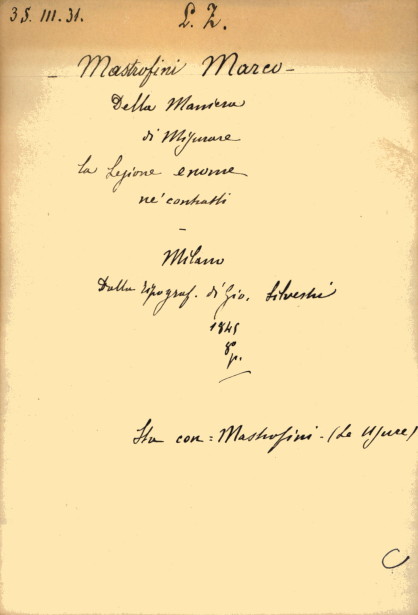 35. III. 31.
L. Z.
- Mastrofini Marco -
Della Maniera
di Misurare
la Lesione enorme
ne' contratti
-
Milano
Dalla Tipograf. di Gio. Silvestri
1845
8° p.
Sta con: Mastrofini - (Le Usure)
C